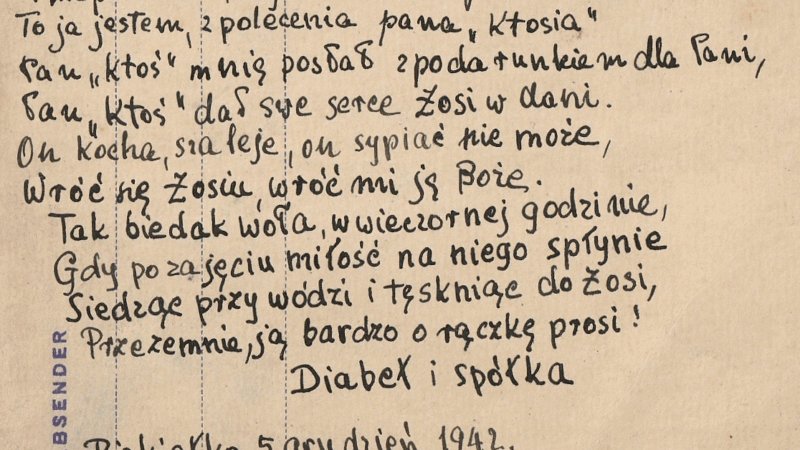 To ja jestem, z polecenia pana „Ktosia"
Pan „Ktoś" mnię posłał z podarunkiem dla Pani,
Pan „Ktoś" dał swe serce Zosi w dani.
On kocha, szaleje, on sypiać nie może,
Wróć się Zosiu, wróć mi ją Boże.
Tak biedak woła, w wieczornej godzinie,
Gdy po zajęciu miłość na niego spłynie
Siedząc przy wódzi i tęskniąc do Zosi,
Przezemnie, ją bardzo o rączkę prosi!
Diabeł i spółka
5 grudzień 1942.
BSENDER